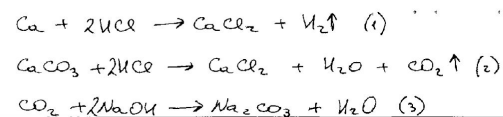 Ca + 2HCl → CaCl₂ + H₂↑ (1)
CaCO₃ + 2HCl → CaCl₂ + H₂O + CO₂↑ (2)
CO₂ + 2NaOH → Na₂CO₃ + H₂O (3)